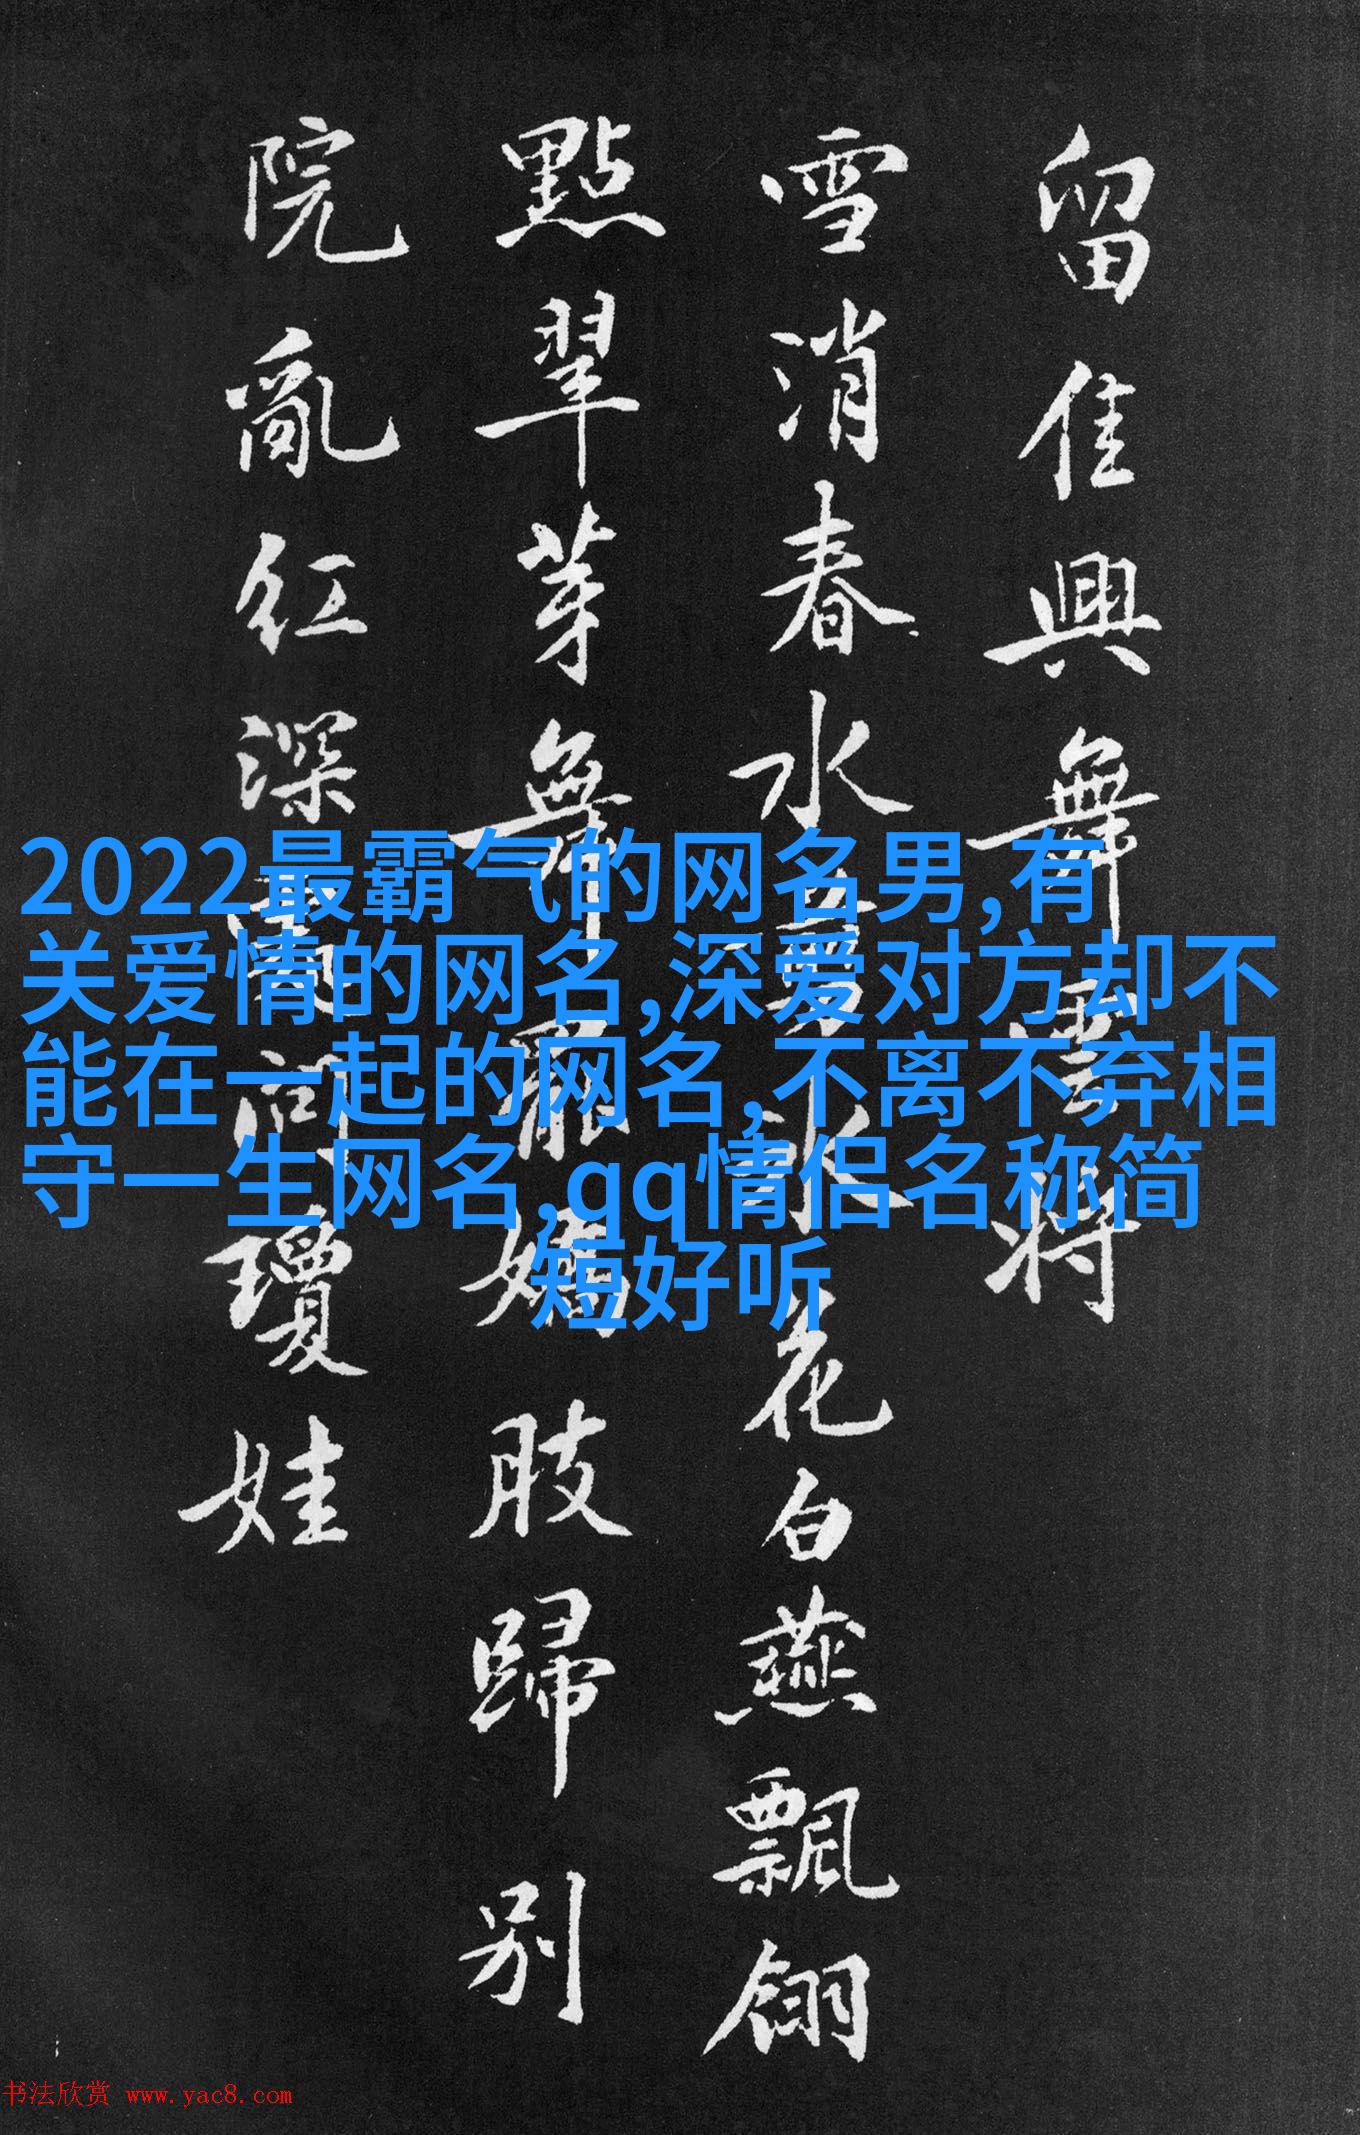 留佳興舞雩將
雪消春水冰花白燕飄翎
點翠芽舞罷嬌肢歸別
院亂紅深處問瓊娃
2022最霸气的网名男,有
关爱情的网名,深爱对方却不
能在一起的网名,不离不弃相
守一生网名,qq情侣名称简
短好听
书法欣赏 www.yac8.com